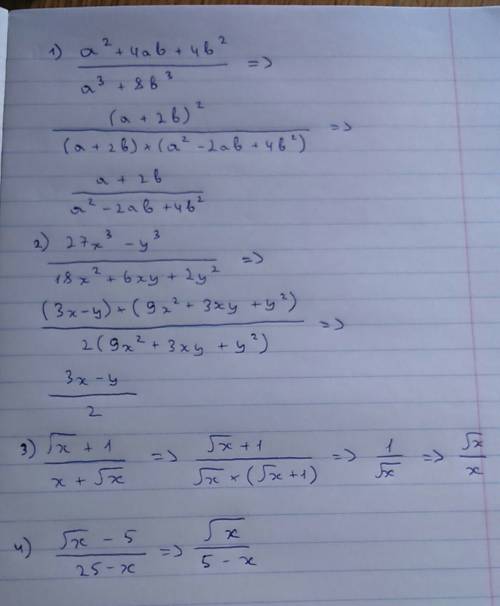 1) a² + 4ab + 4b² / a³ + 8b³ =>
(a + 2b)² / (a + 2b) × (a² - 2ab + 4b²) =>
a + 2b / a² - 2ab + 4b²
2) 27x³ - y³ / 18x² + 6xy + 2y² =>
(3x-y) × (9x² + 3xy + y²) / 2(9x² + 3xy + y²) =>
3x - y / 2
3) √x + 1 / x + √x => √x + 1 / √x × (√x + 1) => 1 / √x => √x / x
4) √x - 5 / 25 - x => √x / 5 - x